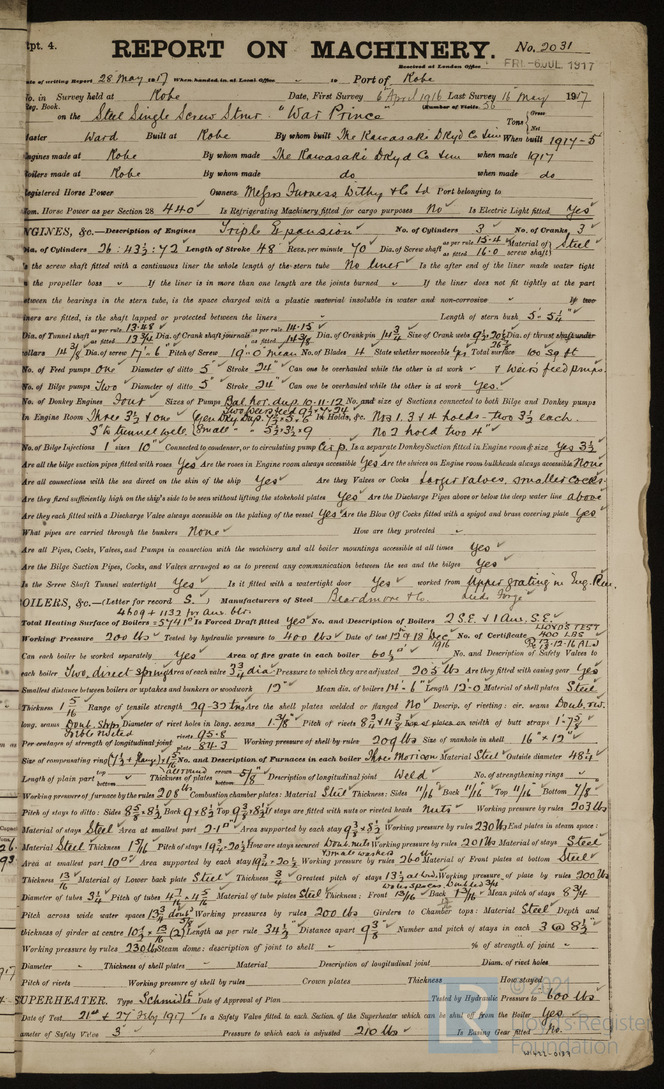 Rpt. 4.
REPORT ON MACHINERY. No. 2031
Received at London Office FRI.-6 JUL 1917
Date of writing Report 28 May 1917 When handed in at Local Office " to Port of Kobe
No. in Survey held at Kobe Date, First Survey 6 April 1916 Last Survey 16 May 1917
Reg. Book. (Number of Visits 56
on the Steel Single Screw Stmr "War Prince" Tons Gross Net
Master Ward Built at Kobe By whom built The Kawasaki DKyd Co Lim When built 1917-5
Engines made at Kobe By whom made The Kawasaki DKyd Co Lim when made 1917
Boilers made at Kobe By whom made do when made do
Registered Horse Power Owners Messrs Furness Withy & Co Ld Port belonging to
Nom. Horse Power as per Section 28 440 Is Refrigerating Machinery fitted for cargo purposes No Is Electric Light fitted Yes
ENGINES, &c.—Description of Engines Triple Expansion No. of Cylinders 3 No. of Cranks 3
Dia. of Cylinders 26 : 43½ : 72 Length of Stroke 48 Revs. per minute 70 Dia. of Screw shaft as per rule 15.4 as fitted 16.0 Material of screw shaft Steel
Is the screw shaft fitted with a continuous liner the whole length of the stern tube No liner Is the after end of the liner made water tight
in the propeller boss " If the liner is in more than one length are the joints burned " If the liner does not fit tightly at the part
between the bearings in the stern tube, is the space charged with a plastic material insoluble in water and non-corrosive " If two
liners are fitted, is the shaft lapped or protected between the liners Length of stern bush 5'- 5¼"
Dia. of Tunnel shaft as per rule 13.48 as fitted 13¾ Dia. of Crank shaft journals as per rule 14.15 as fitted 14⅜ Dia. of Crank pin 14¾ Size of Crank webs Dia. of thrust shaft under
collars 14⅜ Dia. of screw 17'-6" Pitch of Screw 19'-0 mean No. of Blades 4 State whether moveable Yes Total surface 100 sq ft
No. of Feed pumps One Diameter of ditto 5" Stroke 24" Can one be overhauled while the other is at work & Weirs feed pumps.
No. of Bilge pumps Two Diameter of ditto 5" Stroke 24" Can one be overhauled while the other is at work Yes.
No. of Donkey Engines Four Sizes of Pumps Bal hor. dup 10-11-12 No. and size of Suctions connected to both Bilge and Donkey pumps
Two Weirs feed
In Engine Room Three 3½ & one Gen Dky Dup. In Holds, &c. Nos 1. 3 & 4 holds - two 3½ each.
3" to tunnel well. Small " " 5½.3½.9 No 2 hold two 4"
No. of Bilge Injections 1 sizes 10" Connected to condenser, or to circulating pump Cir p. Is a separate Donkey Suction fitted in Engine room & size Yes 3½
Are all the bilge suction pipes fitted with roses Yes Are the roses in Engine room always accessible Yes Are the sluices on Engine room bulkheads always accessible None
Are all connections with the sea direct on the skin of the ship Yes Are they Valves or Cocks Larger valves, smaller cocks.
Are they fixed sufficiently high on the ship's side to be seen without lifting the stokehold plates Yes Are the Discharge Pipes above or below the deep water line above
Are they each fitted with a Discharge Valve always accessible on the plating of the vessel Yes Are the Blow Off Cocks fitted with a spigot and brass covering plate Yes
What pipes are carried through the bunkers None How are they protected "
Are all Pipes, Cocks, Valves, and Pumps in connection with the machinery and all boiler mountings accessible at all times Yes
Are the Bilge Suction Pipes, Cocks, and Valves arranged so as to prevent any communication between the sea and the bilges Yes
Is the Screw Shaft Tunnel watertight Yes Is it fitted with a watertight door Yes worked from Upper grating in Eng. Rm.
BOILERS, &c.—(Letter for record S. ) Manufacturers of Steel Beardmore & Co. Leeds Forge
4609 + 1132 for aux. blr.
Total Heating Surface of Boilers = 5741 Is Forced Draft fitted Yes No. and Description of Boilers 2 S.E. & 1 Aux. S.E.
Working Pressure 200 lbs Tested by hydraulic pressure to 400 lbs Date of test 12 & 19 Dec 1916 No. of Certificate LLOYD'S TEST 400 LBS 13-12-16 A.L.D
Can each boiler be worked separately Yes Area of fire grate in each boiler 60½ No. and Description of Safety Valves to
each boiler Two, direct spring Area of each valve 3¾ dia Pressure to which they are adjusted 205 lbs Are they fitted with easing gear Yes
Smallest distance between boilers or uptakes and bunkers or woodwork 12" Mean dia. of boilers 14'-6" Length 12'-0 Material of shell plates Steel
Thickness 1 5/16 Range of tensile strength 29-32 tons Are the shell plates welded or flanged No Descrip. of riveting: cir. seams Doub. riv.
long. seams Doub. Strap treble riveted Diameter of rivet holes in long. seams 1⅜" Pitch of rivets Lap of plates or width of butt straps 1'-7⅝
Percentages of strength of longitudinal joint rivets 95.8 plate 84.3 Working pressure of shell by rules 209 lbs Size of manhole in shell 16" x 12"
Size of compensating ring No. and Description of Furnaces in each boiler Three Morison Material Steel Outside diameter 48¼
Length of plain part top bottom Thickness of plates crown bottom 5/8 Description of longitudinal joint Weld No. of strengthening rings "
Working pressure of furnace by the rules 208 lbs Combustion chamber plates: Material Steel Thickness: Sides 11/16 Back 11/16 Top 11/16 Bottom 7/8
Pitch of stays to ditto: Sides 8⅝ x 8½ Back 9 x 8½ Top 9⅜ x 8½ If stays are fitted with nuts or riveted heads Nuts Working pressure by rules 203 lbs
Material of stays Steel Area at smallest part 2.10" Area supported by each stay 9⅜ x 8½ Working pressure by rules 230 lbs End plates in steam space:
Material Steel Thickness Pitch of stays 19¼ x 20½ How are stays secured Doub. nuts & small washers Working pressure by rules 201 lbs Material of stays Steel
Area at smallest part 10" Area supported by each stay 19¼ x 20½ Working pressure by rules 260 Material of Front plates at bottom Steel
Thickness 13/16 Material of Lower back plate Steel Thickness ¾ Greatest pitch of stays Working pressure of plate by rules 200 lbs
Diameter of tubes 3¼ Pitch of tubes Material of tube plates Steel Thickness: Front 13/16 Back 13/16 Mean pitch of stays 8¾
Pitch across wide water spaces 13¾ Working pressures by rules 200 lbs Girders to Chamber tops: Material Steel Depth and
thickness of girder at centre 10½ x 13/16 (2) Length as per rule 34½ Distance apart 9⅜ Number and pitch of stays in each 3 @ 8½
Working pressure by rules 230 lbs Steam dome: description of joint to shell % of strength of joint
Diameter Thickness of shell plates Material Description of longitudinal joint Diam. of rivet holes
Pitch of rivets Working pressure of shell by rules Crown plates Thickness How stayed
SUPERHEATER. Type Schmidts Date of Approval of Plan Tested by Hydraulic Pressure to 600 lbs
Date of Test 21st & 27 Feby 1917 Is a Safety Valve fitted to each Section of the Superheater which can be shut off from the Boiler Yes
Diameter of Safety Valve 3" Pressure to which each is adjusted 210 lbs Is Easing Gear fitted No.
© 2021
Lloyd's Register
Foundation
W1422-0139